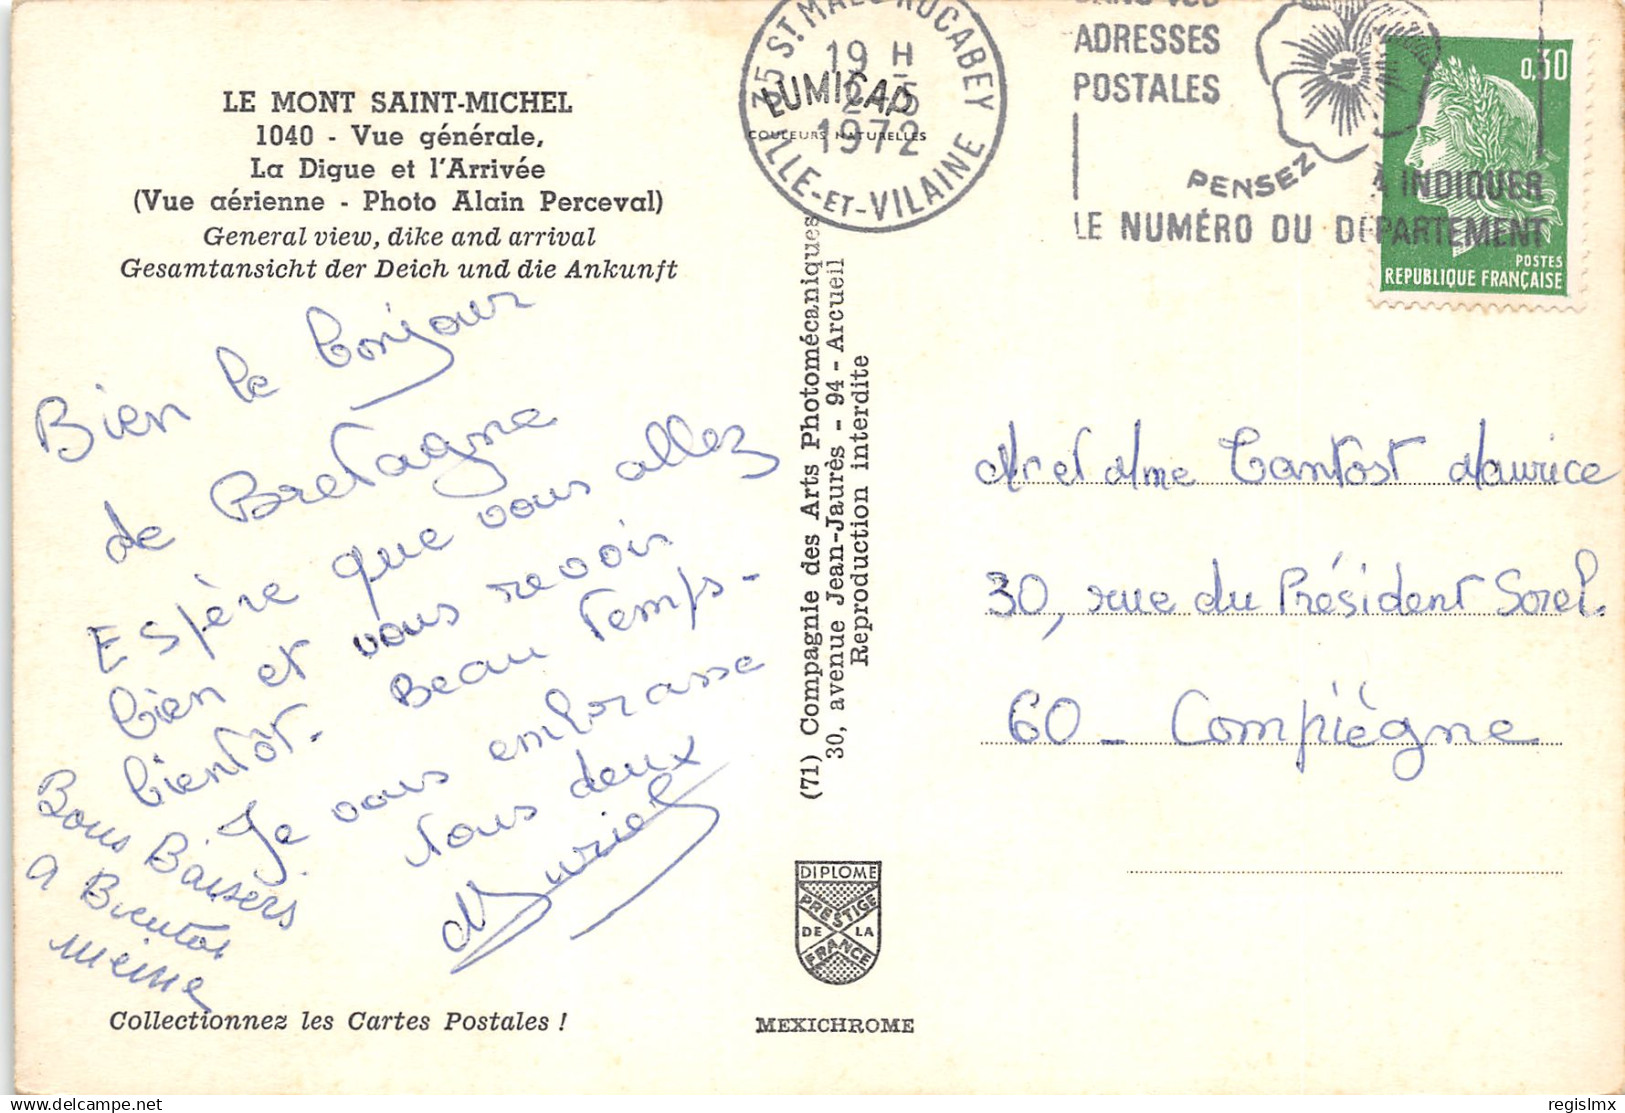 LE MONT SAINT-MICHEL
1040 - Vue générale,
La Digue et l'Arrivée
(Vue aérienne - Photo Alain Perceval)
General view, dike and arrival
Gesamtansicht der Deich und die Ankunft
Bien le bonjour
de Bretagne
Espère que vous allez
bien et vous revoir
bientôt. Beau temps -
Je vous embrasse
tous deux
Muriel
Bons Baisers
a Bientot
Collectionnez les Cartes Postales !
35 ST MALO ROCABEY
19 H
1972
ILLE-ET-VILAINE
LUMICAP
COULEURS NATURELLES
(71) Compagnie des Arts Photomécaniques
30, avenue Jean-Jaurés - 94 - Arcueil
Reproduction interdite
DIPLOME
PRESTIGE
DE LA
FRANCE
MEXICHROME
DANS VOS
ADRESSES
POSTALES
PENSEZ
A INDIQUER
LE NUMÉRO DU DEPARTEMENT
0,30
POSTES
REPUBLIQUE FRANÇAISE
Mr et Mme Tantost Maurice
30, rue du Président Sorel.
60 - Compiègne
regislmx